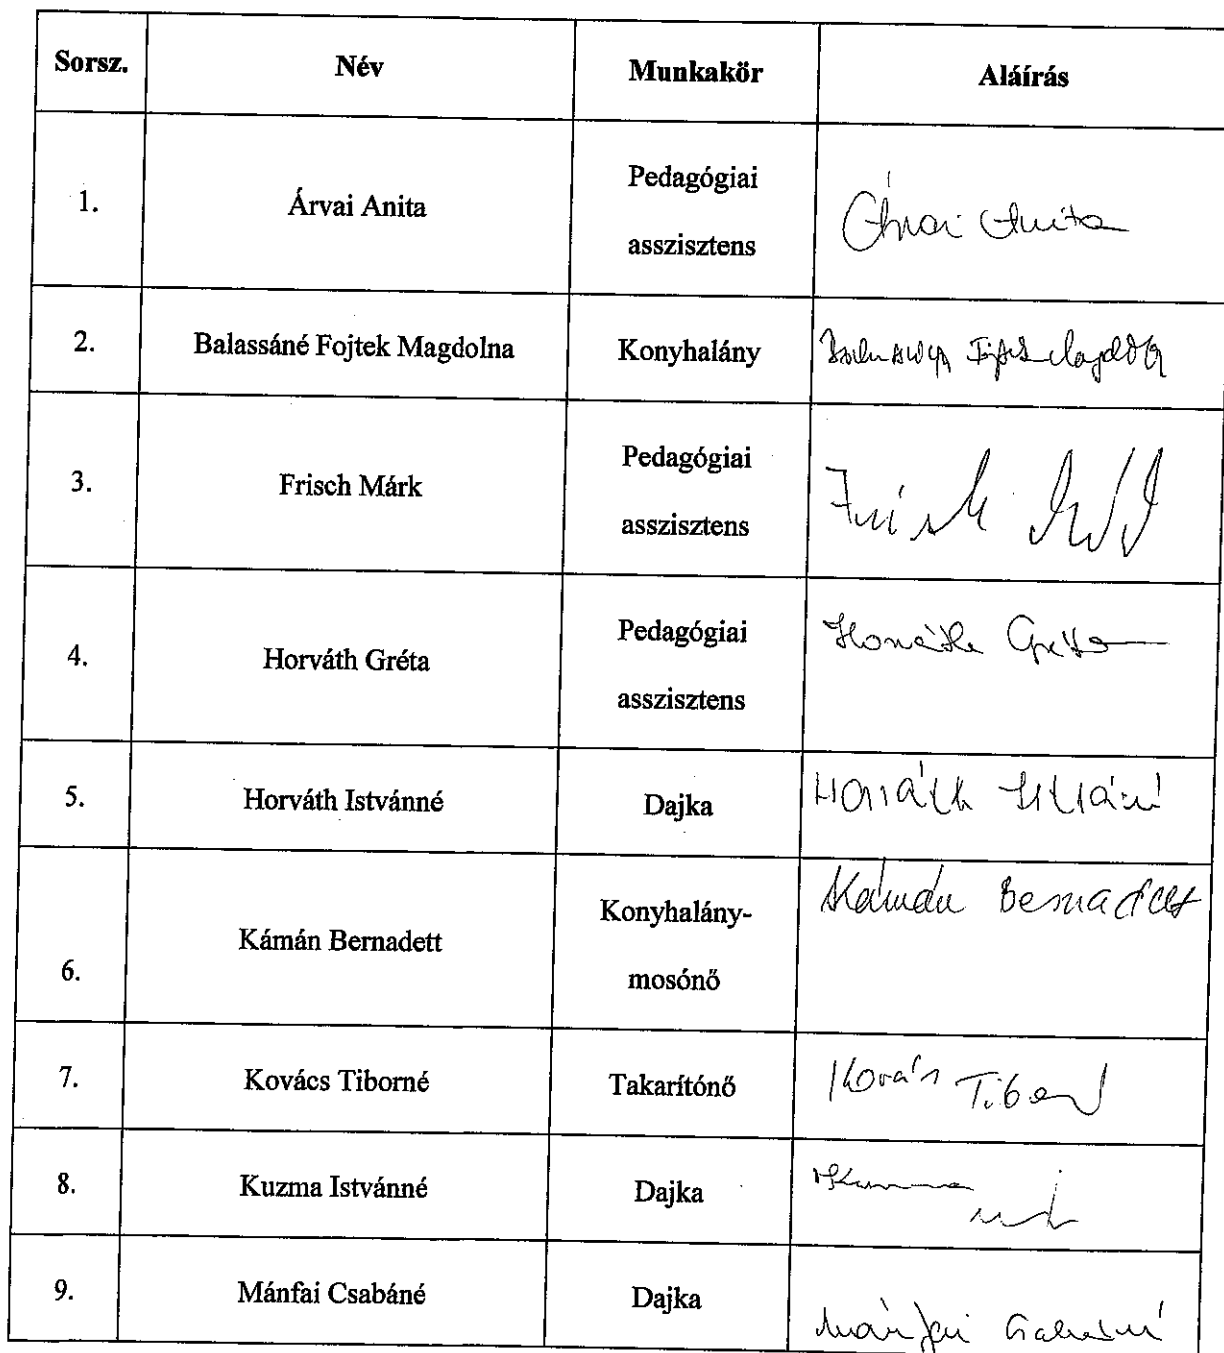 Sorsz. Név Munkakör Aláírás
1. Árvai Anita Pedagógiai
asszisztens Árvai Anita
2. Balassáné Fojtek Magdolna Konyhalány
3. Frisch Márk Pedagógiai
asszisztens Frisch
4. Horváth Gréta Pedagógiai
asszisztens Horváth Gréta
5. Horváth Istvánné Dajka Horváth Istvánné
6. Kámán Bernadett Konyhalány-
mosónő Kámán Bernadett
7. Kovács Tiborné Takarítónő Kovács Tiborné
8. Kuzma Istvánné Dajka
9. Mánfai Csabáné Dajka Mánfai Csabáné